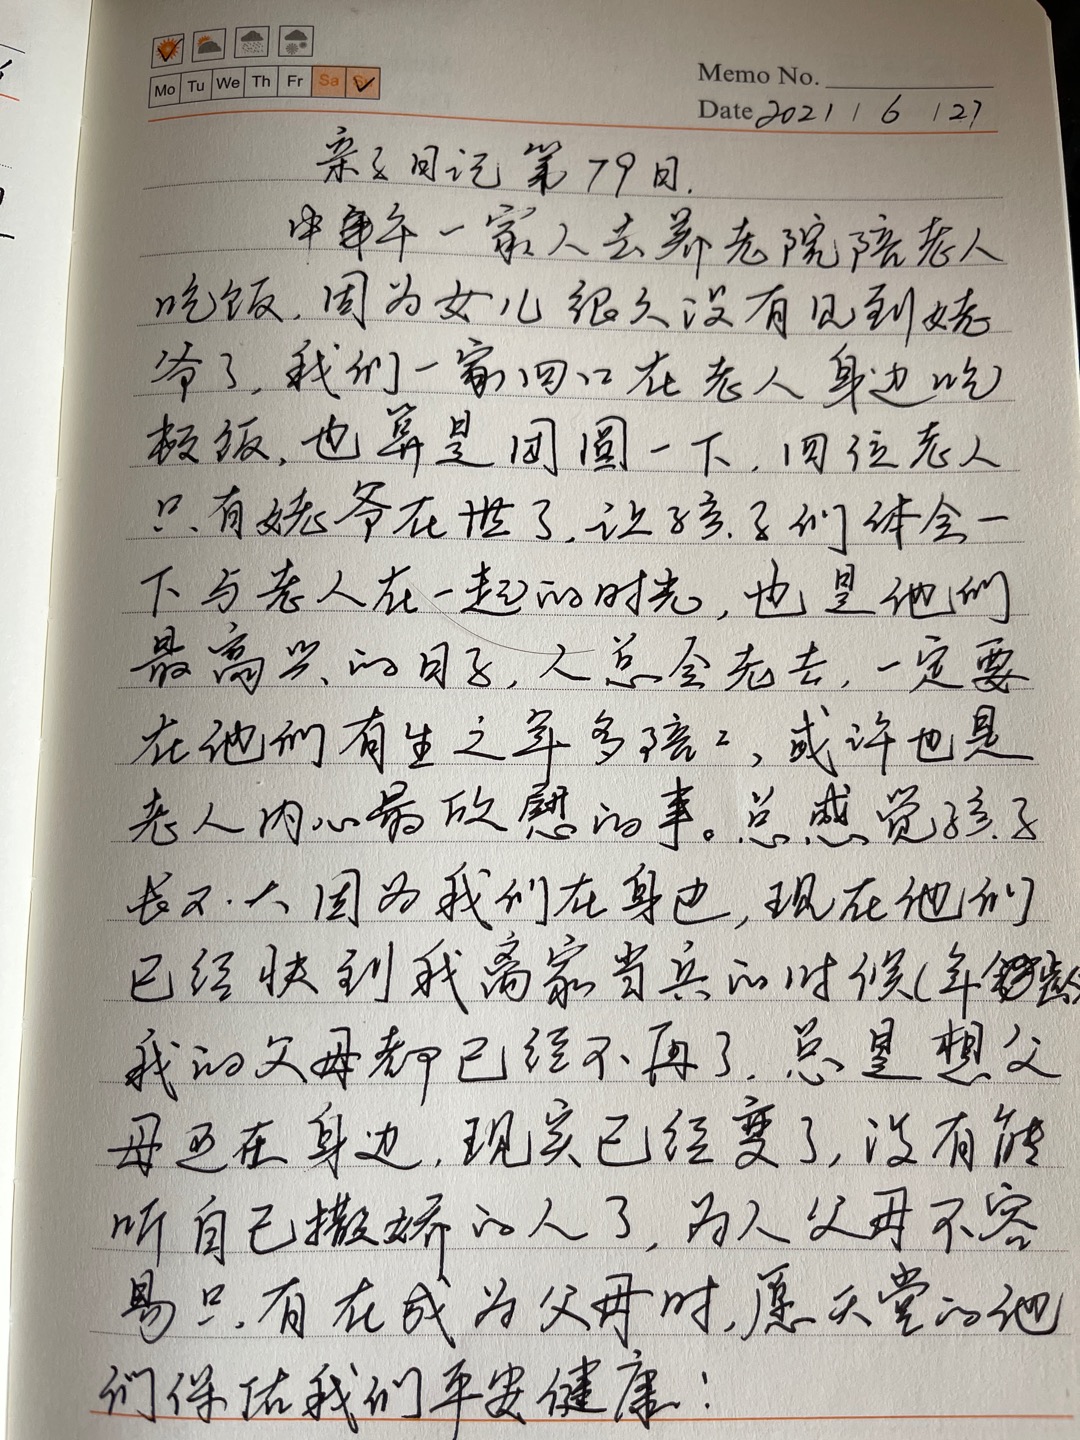 Mo Tu We Th Fr Sa Su
Memo No.
Date 2021 / 6 / 27
亲子日记 第79日.
中午一家人去养老院陪老人
吃饭,因为女儿很久没有见到姥
爷了,我们一家四口在老人身边吃
顿饭,也算是团圆一下,四位老人
只有姥爷在世了,让孩子们体会一
下与老人在一起的时光,也是他们
最高兴的日子,人总会老去,一定要
在他们有生之年多陪陪,或许也是
老人内心最欣慰的事。总感觉孩子
长不大因为我们在身边,现在他们
已经快到我离家当兵的时候(年龄
我的父母都已经不再了.总是想父
母还在身边,现实已经变了,没有能
听自己撒娇的人了,为人父母不容
易只有在成为父母时,愿天堂的他
们保佑我们平安健康!